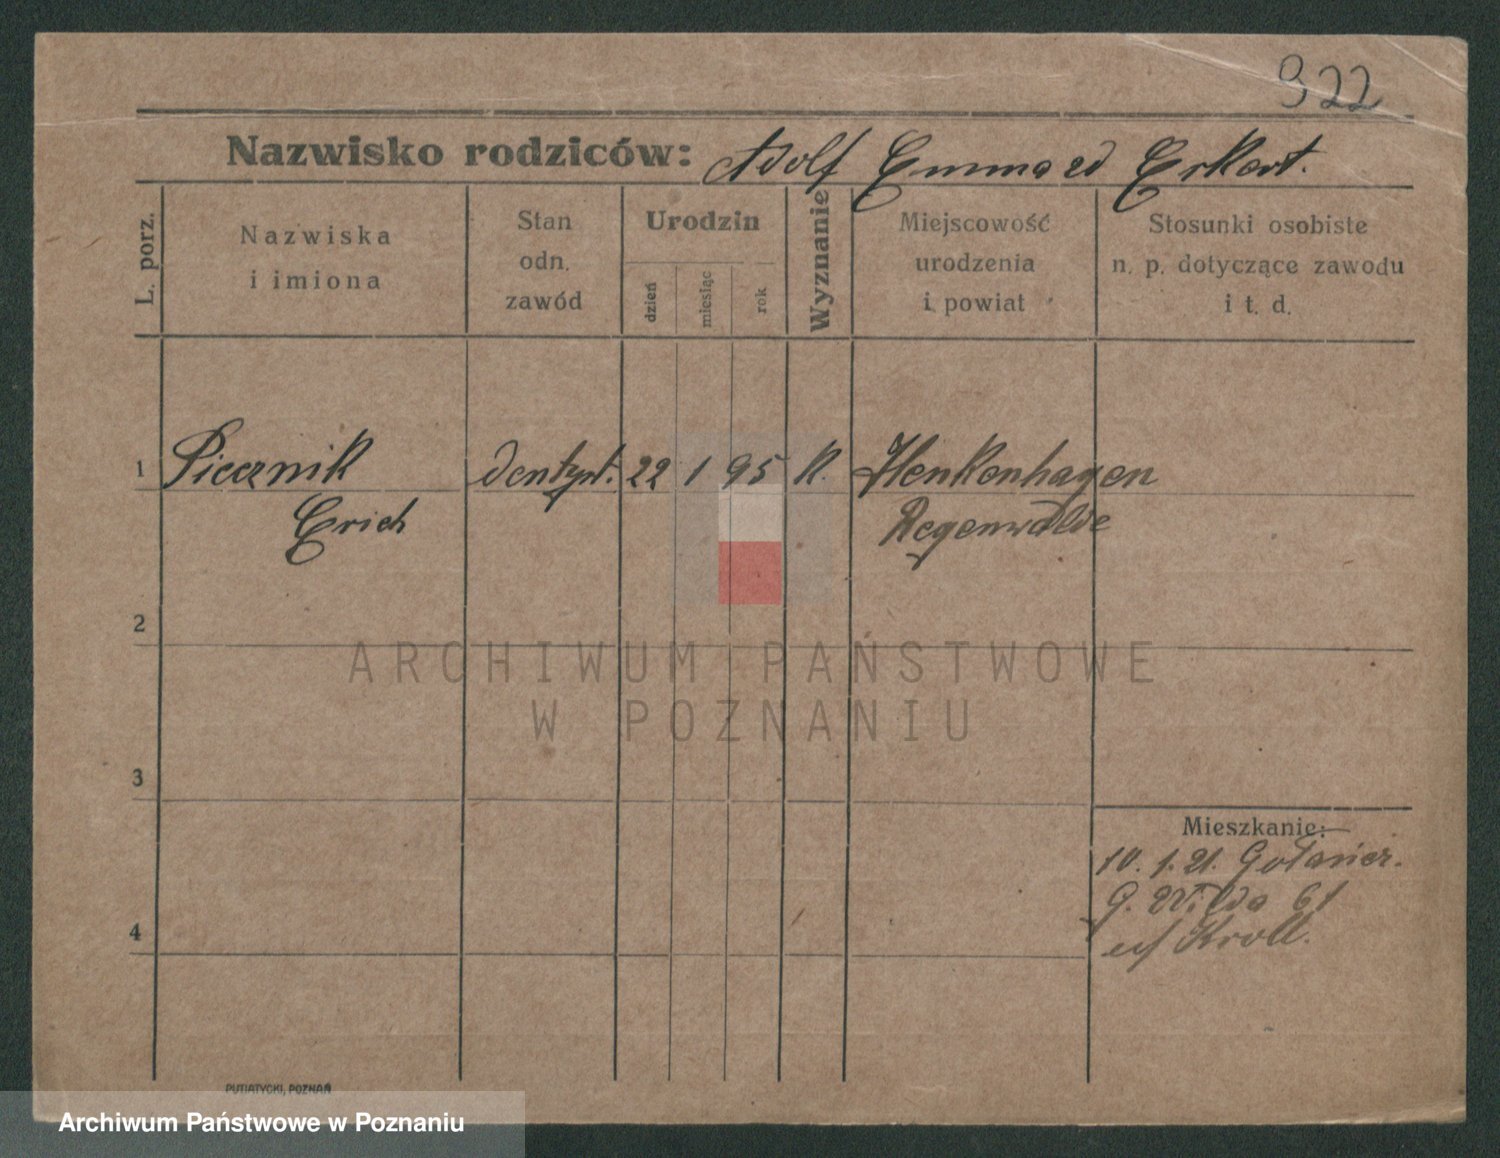 922
Nazwisko rodziców: Adolf Emma zd Erkert.
L. porz.
Nazwiska
i imiona
Stan
odn.
zawód
Urodzin
dzień
miesiąc
rok
Wyznanie
Miejscowość
urodzenia
i powiat
Stosunki osobiste
n. p. dotyczące zawodu
i t. d.
1 Piecznik dentyst. 22 1 95 K. Henkenhagen
Erich Regenwalde
2
ARCHIWUM PAŃSTWOWE
W POZNANIU
3
Mieszkanie:
10. 1. 21. Gołańcz.
G. Wilda 61
Kroll.
4
PUTIATYCKI, POZNAŃ
Archiwum Państwowe w Poznaniu